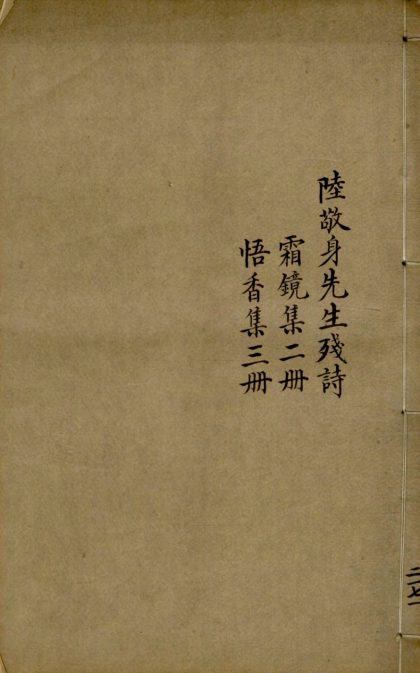 陸敬身先生殘詩
霜鏡集二册
悟香集三册